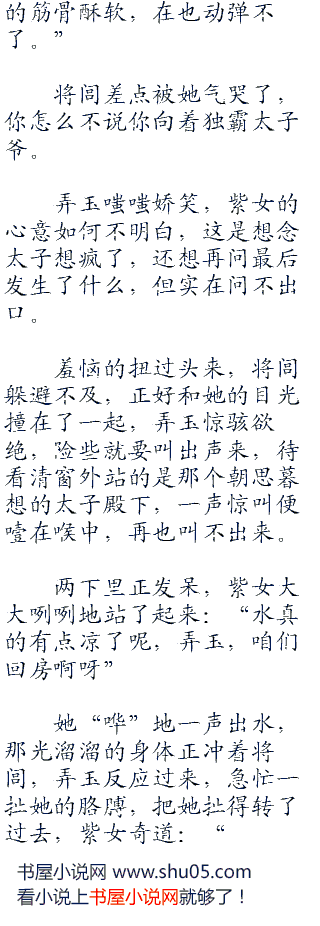 的筋骨酥软，在也动弹不
了。”
将闾差点被她气哭了，
你怎么不说你向着独霸太子
爷。
弄玉嗤嗤娇笑，紫女的
心意如何不明白，这是想念
太子想疯了，还想再问最后
发生了什么，但实在问不出
口。
羞恼的扭过头来，将闾
躲避不及，正好和她的目光
撞在了一起，弄玉惊骇欲
绝，险些就要叫出声来，待
看清窗外站的是那个朝思暮
想的太子殿下，一声惊叫便
噎在喉中，再也叫不出来。
两下里正发呆，紫女大
大咧咧地站了起来：“水真
的有点凉了呢，弄玉，咱们
回房啊呀”
她“哗”地一声出水，
那光溜溜的身体正冲着将
闾，弄玉反应过来，急忙一
扯她的胳膊，把她扯得转了
过去，紫女奇道：“
书屋小说网 www.shu05.com
看小说上书屋小说网就够了！